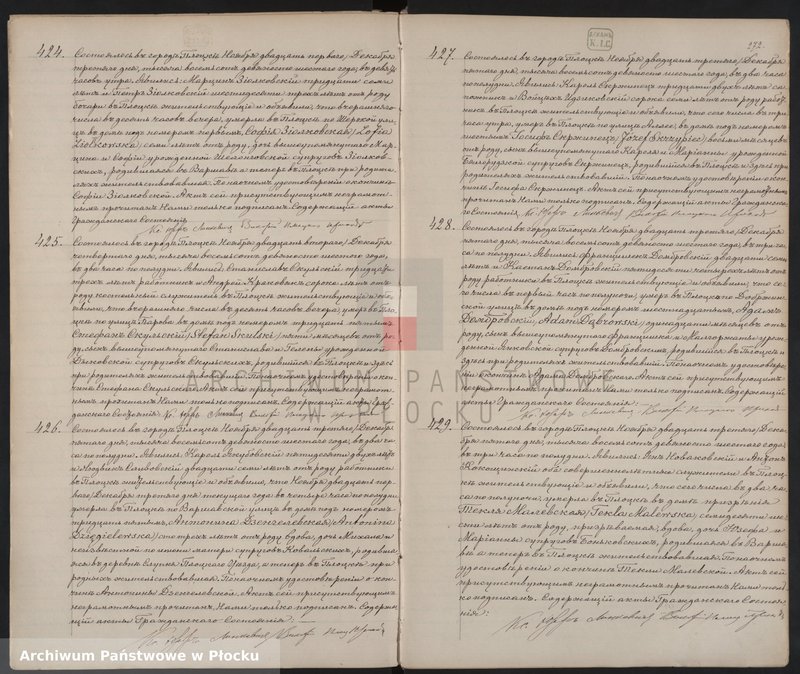 424. Состоялось въ городѣ Плоцкѣ Ноября двадцать перваго /Декабря
третьяго дня, тысяча восемьсотъ девяносто шестого года, въ девять
часовъ утра. Явились: Марцинъ Зіолковскій тридцати семи
лѣтъ и Петръ Зіолковскій шестидесяти трехъ лѣтъ отъ роду
въ Плоцкѣ жительствующіе и объявили, что вчерашняго
числа въ десять часовъ вечера, умерла въ Плоцкѣ по Широкой ули-
цѣ въ домѣ подъ номеромъ первымъ, Софія Зіолковская /Zofia
Ziołkowska/ семи лѣтъ отъ роду, дочь вышеупомянутаго Мар-
цина и Софіи урожденной супруговъ Зіолков-
скихъ, родившаяся въ Варшавѣ а теперь въ Плоцкѣ при родите-
ляхъ жительствовавшая. По наочномъ удостовѣреніи о кончинѣ
Софіи Зіолковской. Актъ сей присутствующимъ неграмот-
нымъ прочитанъ Нами только подписанъ. Содержащій акты
Гражданскаго Состоянія
425. Состоялось въ городѣ Плоцкѣ Ноября двадцать втораго /Декабря
четвертаго дня, тысяча восемьсотъ девяносто шестого года,
въ два часа по полудни. Явились: Станиславъ Скульскій тридцати
трехъ лѣтъ работникъ и Андрей сорока лѣтъ отъ
роду костельный служитель въ Плоцкѣ жительствующіе и объ-
явили, что вчерашняго числа въ десять часовъ вечера, умеръ въ Пло-
цкѣ по улицѣ въ домѣ подъ номеромъ тридцать пятымъ
Стефанъ Скульскій /Stefan Skulski/ пяти мѣсяцевъ отъ ро-
ду, сынъ вышеупомянутаго Станислава и урожденной
супруговъ Скульскихъ, родившійся въ Плоцкѣ и здѣсь
при родителяхъ жительствовавшій. По наочномъ удостовѣреніи о кон-
чинѣ Стефана Скульскаго. Актъ сей присутствующимъ неграмот-
нымъ прочитанъ Нами только подписанъ. Содержащій акты Граж-
данскаго Состоянія:
426. Состоялось въ городѣ Плоцкѣ Ноября двадцать третьяго /Декабря
пятаго дня, тысяча восемьсотъ девяносто шестого года, въ два ча-
са по полудни. Явились: Кароль пятидесяти двухъ лѣтъ
и Людвикъ двадцати семи лѣтъ отъ роду работники
въ Плоцкѣ жительствующіе и объявили, что Ноября двадцать пер-
ваго /Декабря третьяго дня/ текущаго года въ четыре часа по полудни
умерла въ Плоцкѣ по Варшавской улицѣ въ домѣ подъ номеромъ
тридцать пятымъ, Антонина Дзенгелевская /Antonina
Dzięgielewska/ ста трехъ лѣтъ отъ роду, вдова, дочь Михала и
неизвѣстной по имени матери супруговъ Ковальскихъ, родивша-
яся въ деревнѣ Плоцкаго Уѣзда, а теперь въ Плоцкѣ при
родныхъ жительствовавшая. По наочномъ удостовѣреніи о кон-
чинѣ Антонины Дзенгелевской. Актъ сей присутствующимъ
неграмотнымъ прочитанъ, Нами только подписанъ. Содержа-
щій акты Гражданскаго Состоянія: —
272.
427. Состоялось въ городѣ Плоцкѣ Ноября двадцать третьяго /Декабря
пятаго дня, тысяча восемьсотъ девяносто шестого года, въ два часа
по полудни. Явились: Кароль Скржипецъ тридцати двухъ лѣтъ са-
пожникъ и Войцехъ сорока семи лѣтъ отъ роду работ-
никъ въ Плоцкѣ жительствующіе и объявили, что сего числа въ три
часа утра, умеръ въ Плоцкѣ по улицѣ въ домѣ подъ номеромъ
шестымъ Іосифъ Скржипецъ /Józef Skrzypiec/ восьми мѣсяцевъ
отъ роду, сынъ вышеупомянутаго Кароля и Маріанны урожденной
супруговъ Скржипецъ, родившійся въ Плоцкѣ и здѣсь при
родителяхъ жительствовавшій. По наочномъ удостовѣреніи о кон-
чинѣ Іосифа Скржипецъ. Актъ сей присутствующимъ неграмотнымъ
прочитанъ Нами только подписанъ. Содержащій акты Гражданска-
го Состоянія.
428. Состоялось въ городѣ Плоцкѣ Ноября двадцать третьяго /Декабря
пятаго дня, тысяча восемьсотъ девяносто шестого года, въ три ча-
са по полудни. Явились: Францишекъ Домбровскій двадцати семи
лѣтъ и Каетанъ Домбровскій пятидесяти четырехъ лѣтъ отъ
роду работники въ Плоцкѣ жительствующіе и объявили, что се-
го числа въ первый часъ по полуночи, умеръ въ Плоцкѣ по Добржин-
ской улицѣ въ домѣ подъ номеромъ шестнадцатымъ, Адамъ
Домбровскій /Adam Dąbrowski/ одиннадцати мѣсяцевъ отъ
роду, сынъ вышеупомянутаго Францишка и Малгоржаты урож-
денной супруговъ Домбровскихъ, родившійся въ Плоцкѣ и
здѣсь при родителяхъ жительствовавшій. По наочномъ удостовѣре-
ніи о кончинѣ Адама Домбровскаго. Актъ сей присутствующимъ
неграмотнымъ прочитанъ Нами только подписанъ. Содержащій
акты Гражданскаго Состоянія:
429. Состоялось въ городѣ Плоцкѣ Ноября двадцать третьяго /Дека-
бря пятаго дня, тысяча восемьсотъ девяносто шестого года
въ три часа по полудни. Явились: Янъ Новаковскій и Антонъ
оба совершеннолѣтніе служители въ Плоц-
кѣ жительствующіе и объявили, что сего числа въ два ча-
са по полуночи, умерла въ Плоцкѣ въ домѣ призрѣнія
Текля Малевская /Tekla Malewska/ семидесяти ше-
сти лѣтъ отъ роду, призрѣваемая, вдова, дочь Іозефа и
Маріанны супруговъ Боньковскихъ, родившаяся въ Варша-
вѣ а теперь въ Плоцкѣ жительствовавшая. По наочномъ
удостовѣреніи о кончинѣ Текли Малевской. Актъ сей
присутствующимъ неграмотнымъ прочитанъ Нами толь-
ко подписанъ. Содержащій акты Гражданскаго Состоя-
нія:
ARCHIWUM PAŃSTWOWE
W PŁOCKU
Archiwum Państwowe w Płocku